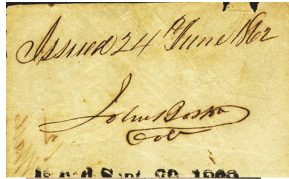 Issued 24th June 1862
John Boston
Col
Sept. 20,